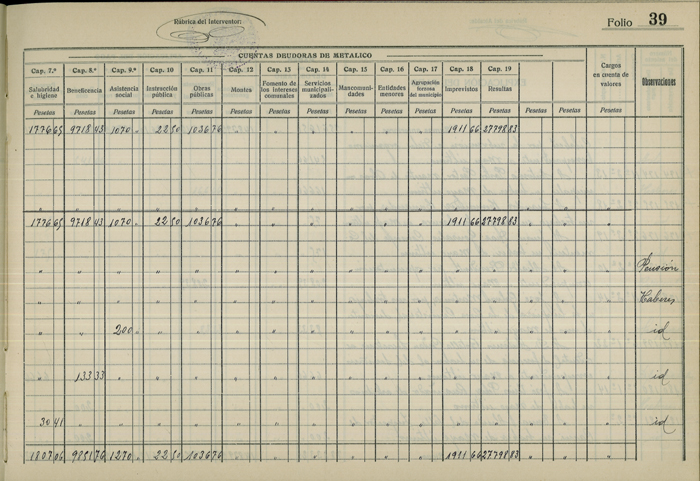 Rúbrica del Interventor:
Folio 39
CUENTAS DEUDORAS DE METALICO
Cap. 7.º Cap. 8.º Cap. 9.º Cap. 10 Cap. 11 Cap. 12 Cap. 13 Cap. 14 Cap. 15 Cap. 16 Cap. 17 Cap. 18 Cap. 19
Salubridad e higiene Beneficencia Asistencia social Instrucción pública Obras públicas Montes Fomento de los intereses comunales Servicios municipalizados Mancomunidades Entidades menores Agrupación forzosa del municipio Imprevistos Resultas Cargos en cuenta de valores Observaciones
Pesetas Pesetas Pesetas Pesetas Pesetas Pesetas Pesetas Pesetas Pesetas Pesetas Pesetas Pesetas Pesetas Pesetas Pesetas Pesetas
1776 65 9718 43 1070 " 22 50 1036 76 1911 66 27798 83
1776 65 9718 43 1070 " 22 50 1036 76 " " " " " " 1911 66 27798 83 " " "
Pensión
Haberes
200 " id
133 33 id
30 41 id
1807 06 9851 76 1270 " 22 50 1036 76 " " " " " " 1911 66 27798 83 " " "